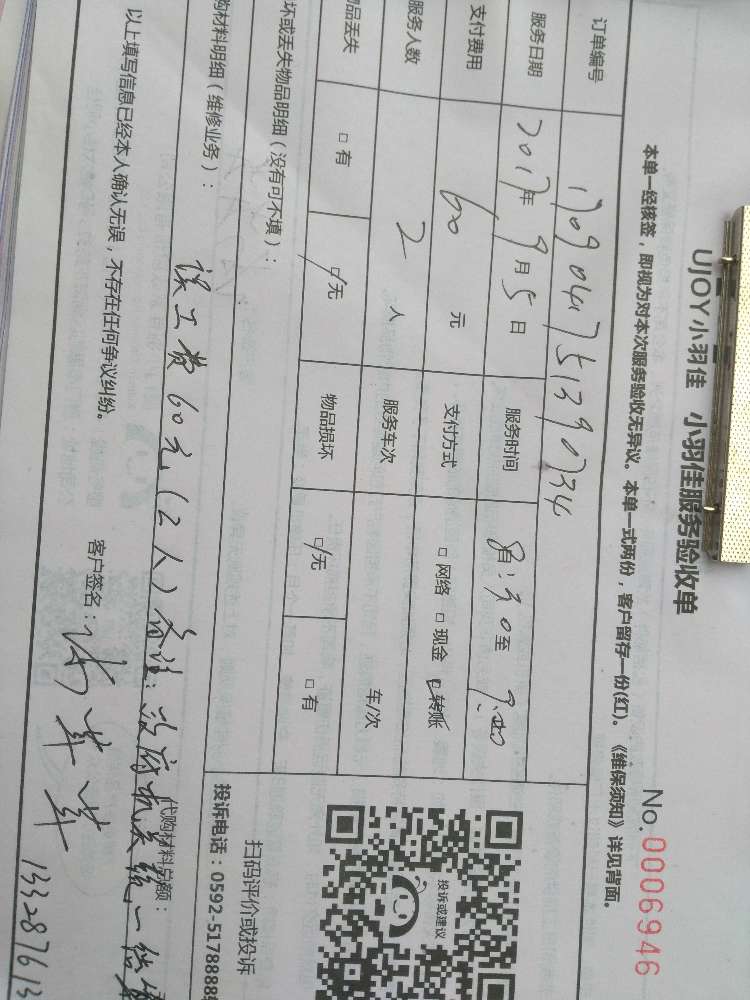 UJOY小羽佳 小羽佳服务验收单
No.0006946
本单一经核签，即视为对本次服务验收无异议。本单一式两份，客户留存一份(红)。《维保须知》详见背面。
订单编号 17090475139034
服务日期 2017年9月5日 服务时间 8:30至9:20
支付费用 60元 支付方式 □网络 □现金 ☑转账
服务人数 2人 服务车次 车/次
物品丢失 □有 ☑无 物品损坏 ☑无 □有
坏或丢失物品明细（没有可不填）：
购材料明细（维修业务）：
误工费60元（2人）备注：政府机关统一结算
代购材料总额：
以上填写信息已经本人确认无误，不存在任何争议纠纷。
客户签名：
13328761
投诉或建议
扫码评价或投诉
投诉电话：0592-5178888